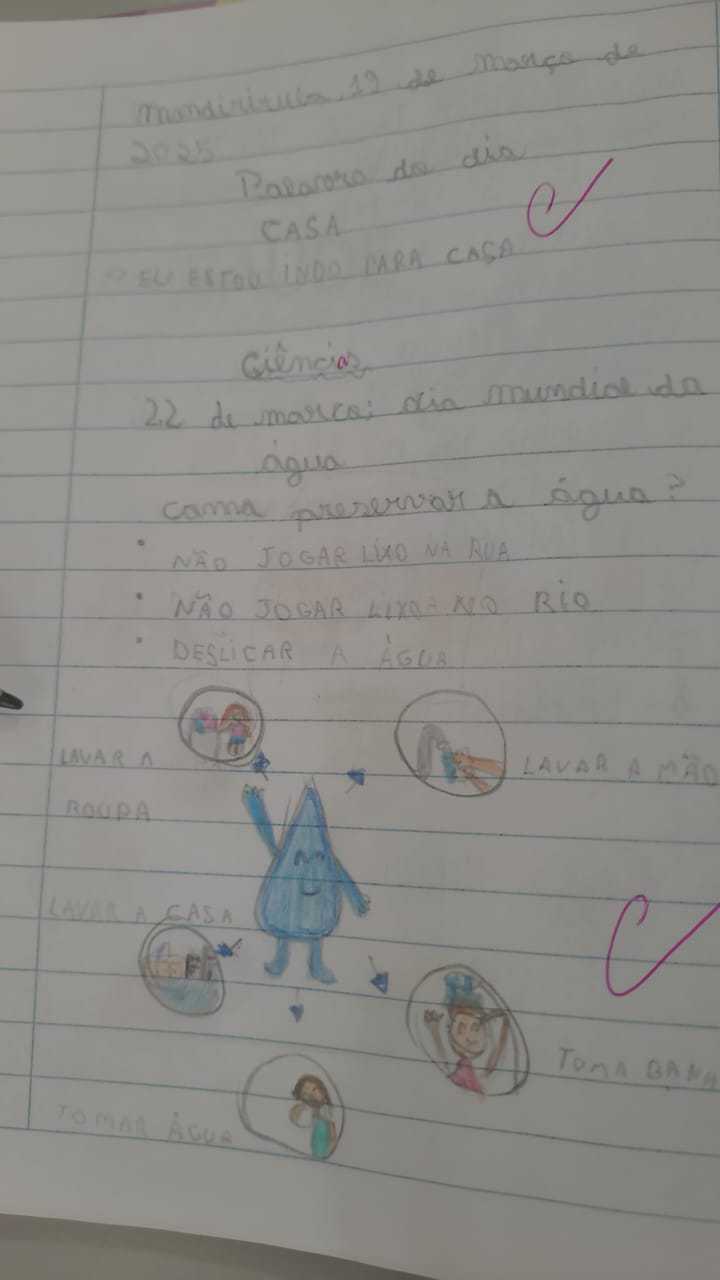 Mandirituba, 19 de março de
2025
Palavra do dia
CASA
EU ESTOU INDO PARA CASA
Ciências
22 de março: dia mundial da
água
Como preservar a água?
NÃO JOGAR LIXO NA RUA
NÃO JOGAR LIXO NO RIO
DESLICAR A ÁGUA
LAVAR A
ROUPA
LAVAR A MÃO
LAVAR A CASA
TOMA BANH
TOMAR ÁGUA